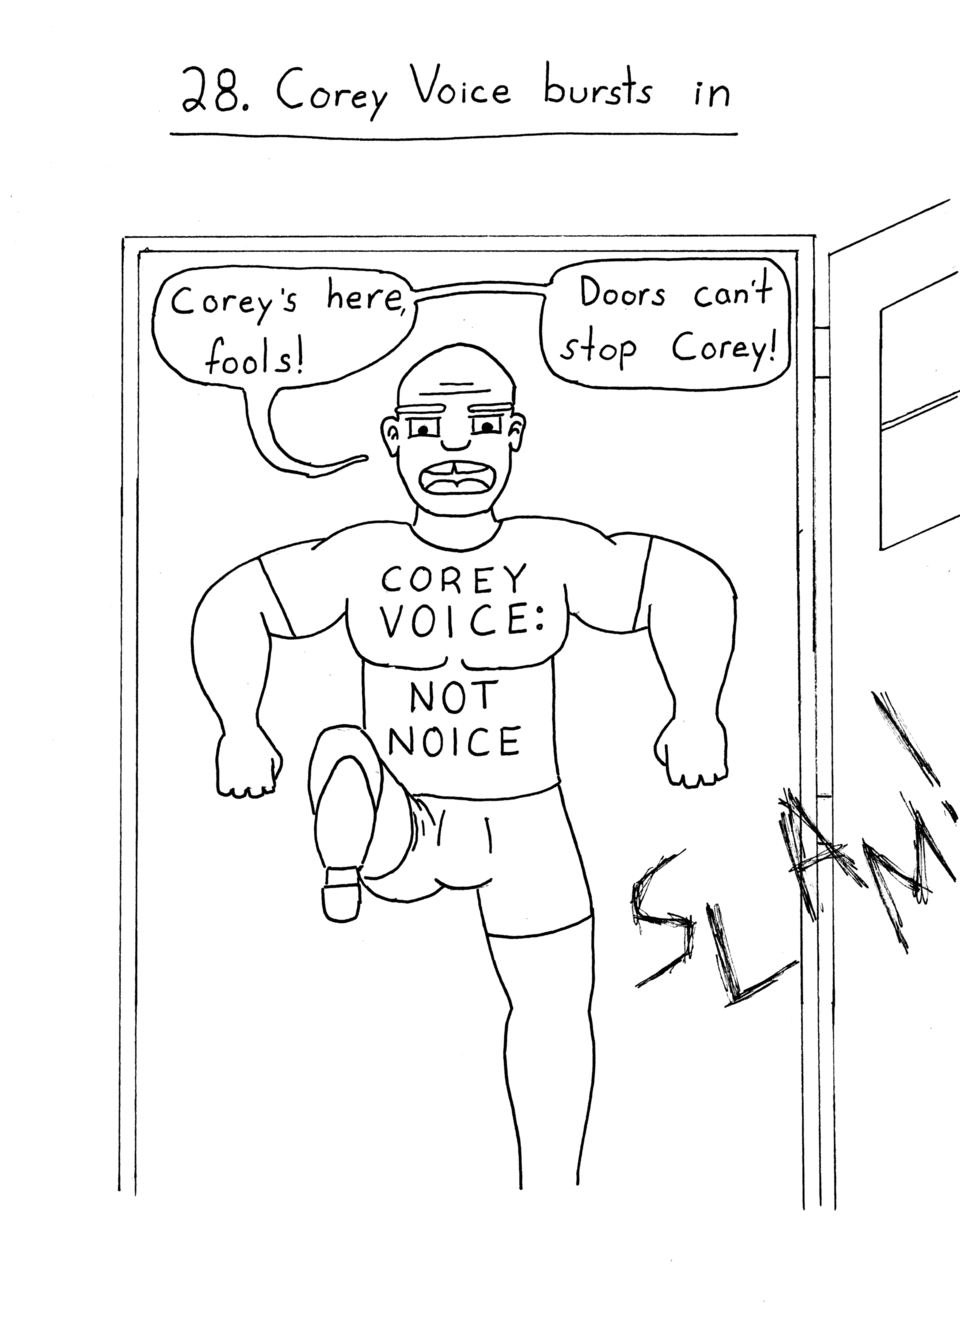 28. Corey Voice bursts in
Corey's here,
fools!
Doors can't
stop Corey!
COREY
VOICE:
NOT
NOICE
SLAM!